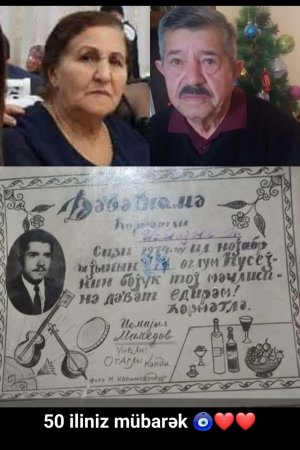 Дәвәтнамә
Һөрмәтли
Сизи 1974-ҹү ил нојабр
ајынын оғлум Һүсеј-
нин бөјүк той мәҹлиси-
нә дәвәт едирәм!
Һөрмәтлә.
Исмајыл
Мамедов
Унван:
кәнди.
Фото М.
50 iliniz mübarək 🧿❤️❤️